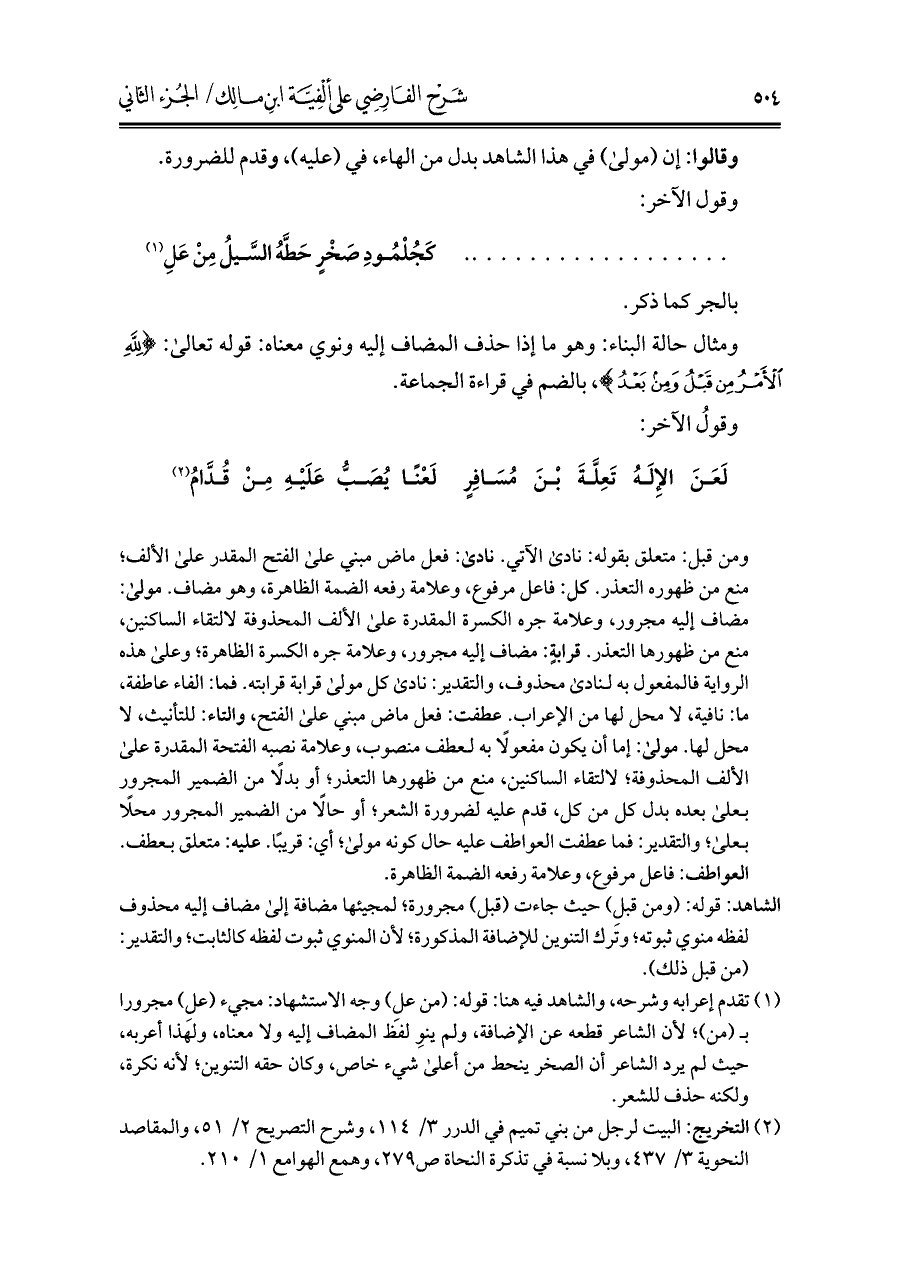 ٥٠٤ شرح الفارضي على ألفية ابن مالك/ الجزء الثاني
وقالوا: إن (مولىٰ) في هذا الشاهد بدل من الهاء، في (عليه)، وقدم للضرورة.
وقول الآخر:
. . . . . . . . . . . . . . . . . .. كَجُلْمُـودِ صَخْرٍ حَطَّهُ السَّـيلُ مِنْ عَلِ(١)
بالجر كما ذكر.
ومثال حالة البناء: وهو ما إذا حذف المضاف إليه ونوي معناه: قوله تعالىٰ: ﴿لِلَّهِ
ٱلْأَمْرُ مِن قَبْلُ وَمِنۢ بَعْدُ﴾، بالضم في قراءة الجماعة.
وقولُ الآخر:
لَعَـنَ الإِلَـهُ تَعِلَّـةَ بْـنَ مُسَـافِرٍ لَعْنًـا يُصَـبُّ عَلَيْـهِ مِـنْ قُـدَّامُ(٢)
ومن قبل: متعلق بقوله: نادىٰ الآتي. نادىٰ: فعل ماض مبني علىٰ الفتح المقدر علىٰ الألف؛
منع من ظهوره التعذر. كل: فاعل مرفوع، وعلامة رفعه الضمة الظاهرة، وهو مضاف. مولىٰ:
مضاف إليه مجرور، وعلامة جره الكسرة المقدرة علىٰ الألف المحذوفة لالتقاء الساكنين،
منع من ظهورها التعذر. قرابةٍ: مضاف إليه مجرور، وعلامة جره الكسرة الظاهرة؛ وعلىٰ هذه
الرواية فالمفعول به لـنادىٰ محذوف، والتقدير: نادىٰ كل مولىٰ قرابة قرابته. فما: الفاء عاطفة،
ما: نافية، لا محل لها من الإعراب. عطفت: فعل ماض مبني علىٰ الفتح، والتاء: للتأنيث، لا
محل لها. مولىٰ: إما أن يكون مفعولًا به لـعطف منصوب، وعلامة نصبه الفتحة المقدرة علىٰ
الألف المحذوفة؛ لالتقاء الساكنين، منع من ظهورها التعذر؛ أو بدلًا من الضمير المجرور
بـعلىٰ بعده بدل كل من كل، قدم عليه لضرورة الشعر؛ أو حالًا من الضمير المجرور محلًا
بـعلىٰ؛ والتقدير: فما عطفت العواطف عليه حال كونه مولىٰ؛ أي: قريبًا. عليه: متعلق بـعطف.
العواطف: فاعل مرفوع، وعلامة رفعه الضمة الظاهرة.
الشاهد: قوله: (ومن قبل) حيث جاءت (قبل) مجرورة؛ لمجيئها مضافة إلىٰ مضاف إليه محذوف
لفظه منوي ثبوته؛ وتَرك التنوين للإضافة المذكورة؛ لأن المنوي ثبوت لفظه كالثابت؛ والتقدير:
(من قبل ذلك).
(١) تقدم إعرابه وشرحه، والشاهد فيه هنا: قوله: (من عل) وجه الاستشهاد: مجيء (عل) مجرورا
بـ (من)؛ لأن الشاعر قطعه عن الإضافة، ولم ينوِ لفظَ المضاف إليه ولا معناه، ولهَذا أعربه،
حيث لم يرد الشاعر أن الصخر ينحط من أعلىٰ شيء خاص، وكان حقه التنوين؛ لأنه نكرة،
ولكنه حذف للشعر.
(٢) التخريج: البيت لرجل من بني تميم في الدرر ٣/ ١١٤، وشرح التصريح ٢/ ٥١، والمقاصد
النحوية ٣/ ٤٣٧، وبلا نسبة في تذكرة النحاة ص٢٧٩، وهمع الهوامع ١/ ٢١٠.